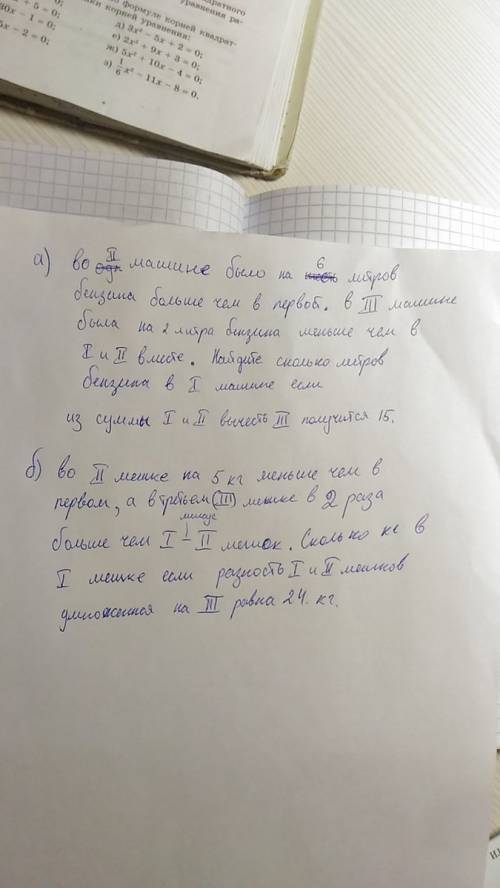 формуле корней квадрат-
корней уравнения:
+ 5 = 0;
д) 3x² − 5x + 2 = 0;
30x − 1 = 0;
е) 2x² + 9x + 3 = 0;
5x − 2 = 0;
ж) 5x² + 10x − 4 = 0;
з) 1/6 x² − 11x − 8 = 0.
а) во II машине было на 6 литров
бензина больше чем в первой. в III машине
была на 2 литра бензина меньше чем в
I и II вместе. Найдите сколько литров
бензина в I машине если
из суммы I и II вычесть III получится 15.
б) во II мешке на 5 кг меньше чем в
первом, а в третьем (III) мешке в 2 раза
минус
больше чем I − II мешок. Сколько кг в
I мешке если разность I и II мешков
умноженная на III равна 24 кг.